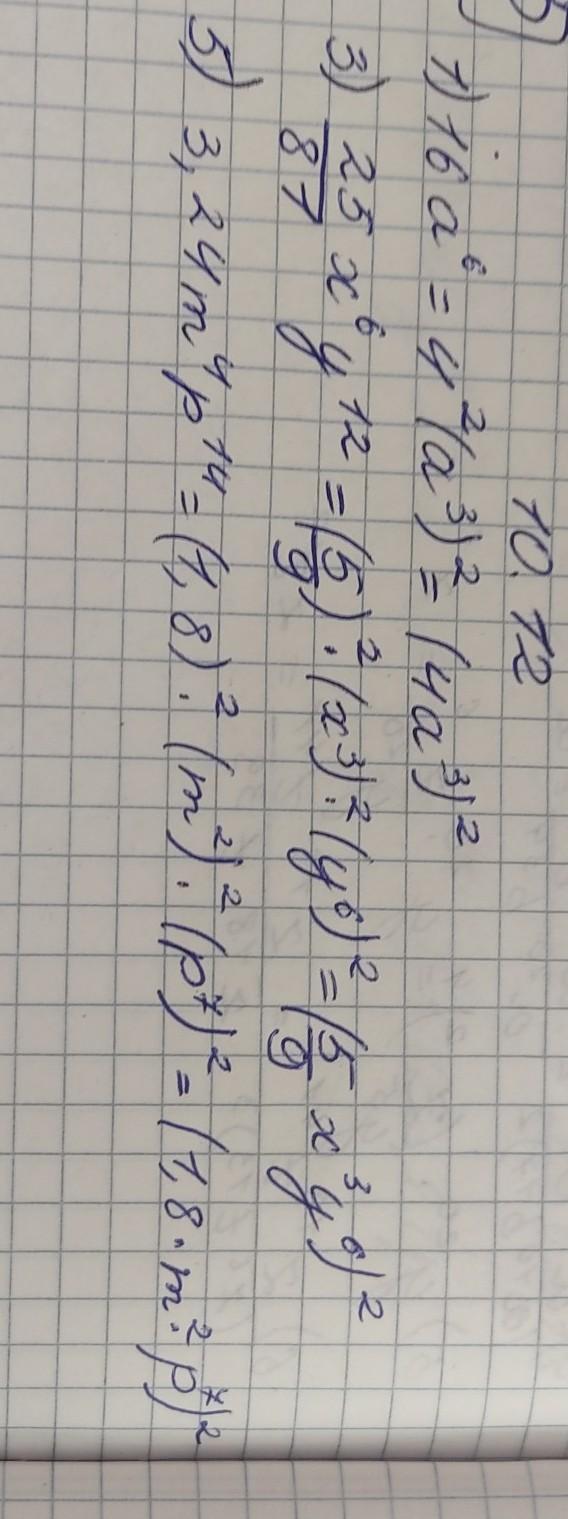 10.12
1) 16a⁶ = 4²(a³)² = (4a³)²
3) 25/81 x⁶y¹² = (5/9)² · (x³)² · (y⁶)² = (5/9 x³y⁶)²
5) 3,24m⁴p¹⁴ = (1,8)² · (m²)² · (p⁷)² = (1,8 · m² · p⁷)²